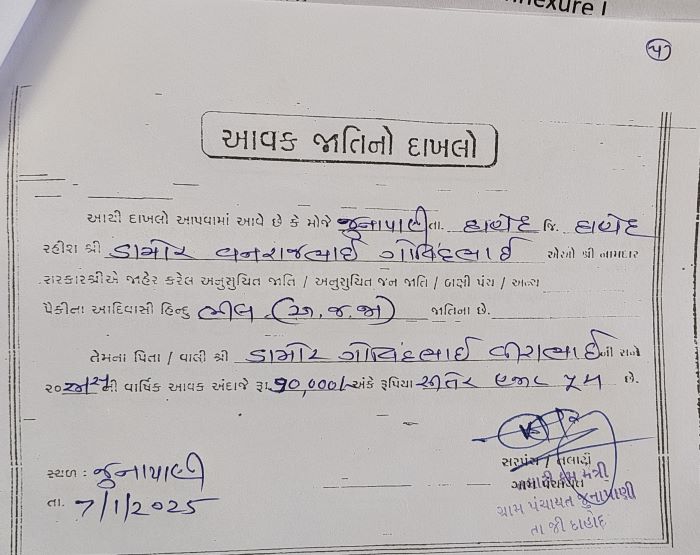 nexure I
૫
આવક જાતિનો દાખલો
આથી દાખલો આપવામાં આવે છે કે મોજે જુનાપાણી તા. દાહોદ જિ. દાહોદ
રહીશ શ્રી ડામોર વનરાજભાઈ ગોવિંદભાઈ એઓ શ્રી નામદાર
સરકારશ્રીએ જાહેર કરેલ અનુસુચિત જાતિ / અનુસુચિત જન જાતિ / બક્ષી પંચ / અન્ય
પૈકીના આદિવાસી હિન્દુ ભીલ (અ.જ.જા) જાતિના છે.
તેમના પિતા / વાલી શ્રી ડામોર ગોવિંદભાઈ વીરાભાઈ ની સને
૨૦ ની વાર્ષિક આવક અંદાજે રૂા. 70,000/- અંકે રૂપિયા સીતેર હજાર પુરા છે.
સરપંચ / તલાટી
સ્થળ : જુનાપાણી
મંત્રી
ગ્રામ પંચાયત જુનાપાણી
તા. 7/1/2025
તા જી દાહોદ